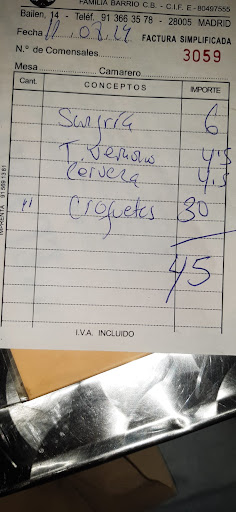 FAMILIA BARRIO C.B. - C.I.F. E-80497555
Bailén, 14 - Teléf. 91 366 35 78 - 28005 MADRID
Fecha 11.07.24 FACTURA SIMPLIFICADA
N.º de Comensales 3059
Mesa Camarero
Cant. CONCEPTOS IMPORTE
Sangría 6
T. Verano 4'5
Cerveza 4'5
" Croquetas 30
45
I.V.A. INCLUIDO
IMPRENTA